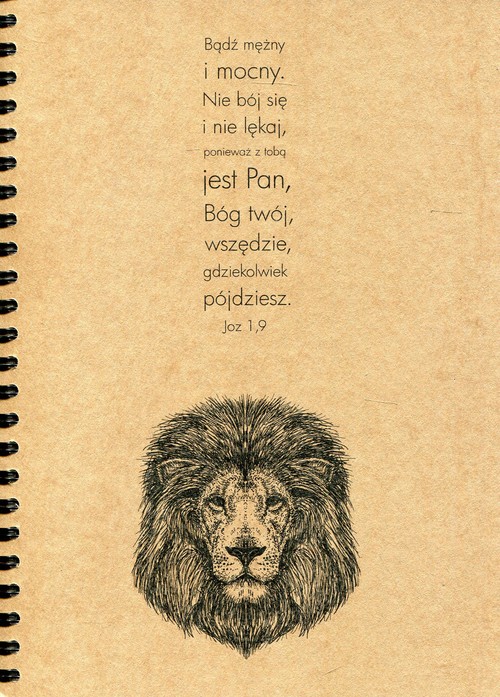 Bądź mężny
i mocny.
Nie bój się
i nie lękaj,
ponieważ z tobą
jest Pan,
Bóg twój,
wszędzie,
gdziekolwiek
pójdziesz.
Joz 1,9